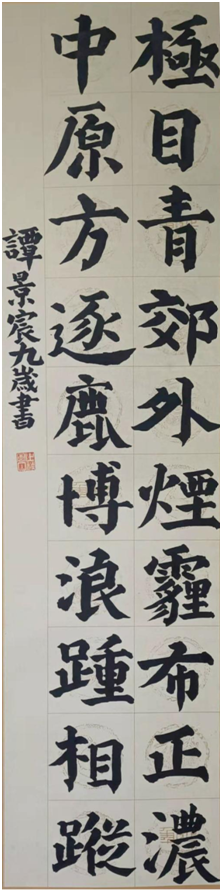 極目青郊外煙霾布正濃
中原方逐鹿博浪踵相蹤
譚景宸九歲書